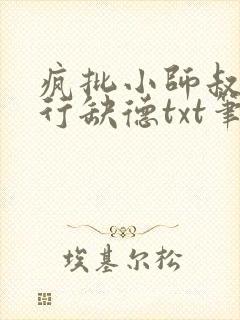 疯批小师叔
行缺德txt笔
埃基尔松